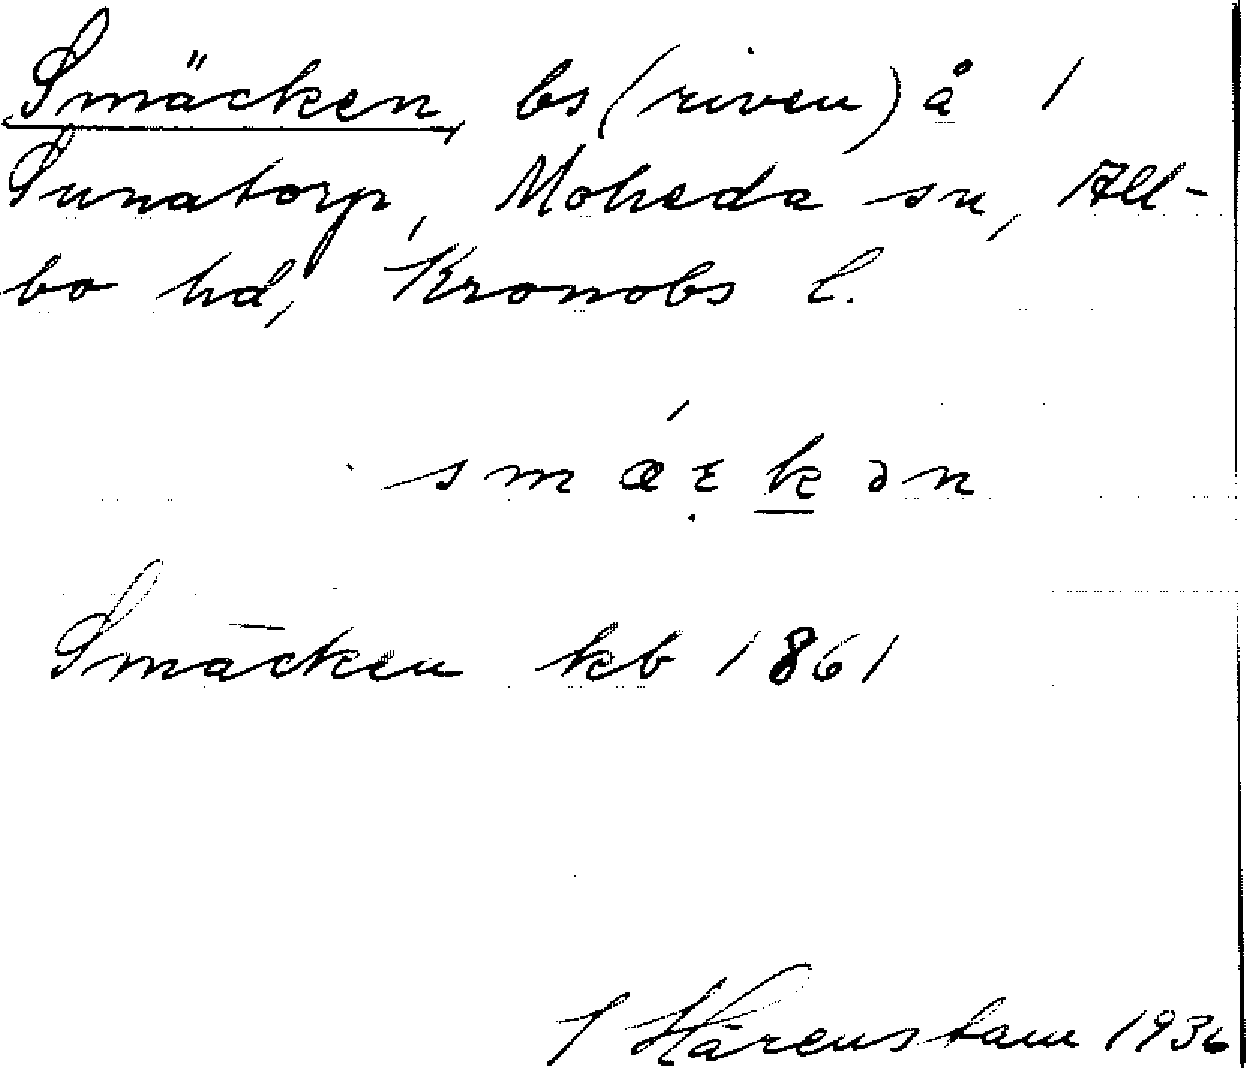 Smäcken, bs (riven) å 1
Sunatorp, Moheda sn, All-
bo hd, Kronobs l.
smǽ̣kən
Smäcken kb 1861
J Hårenstam 1936